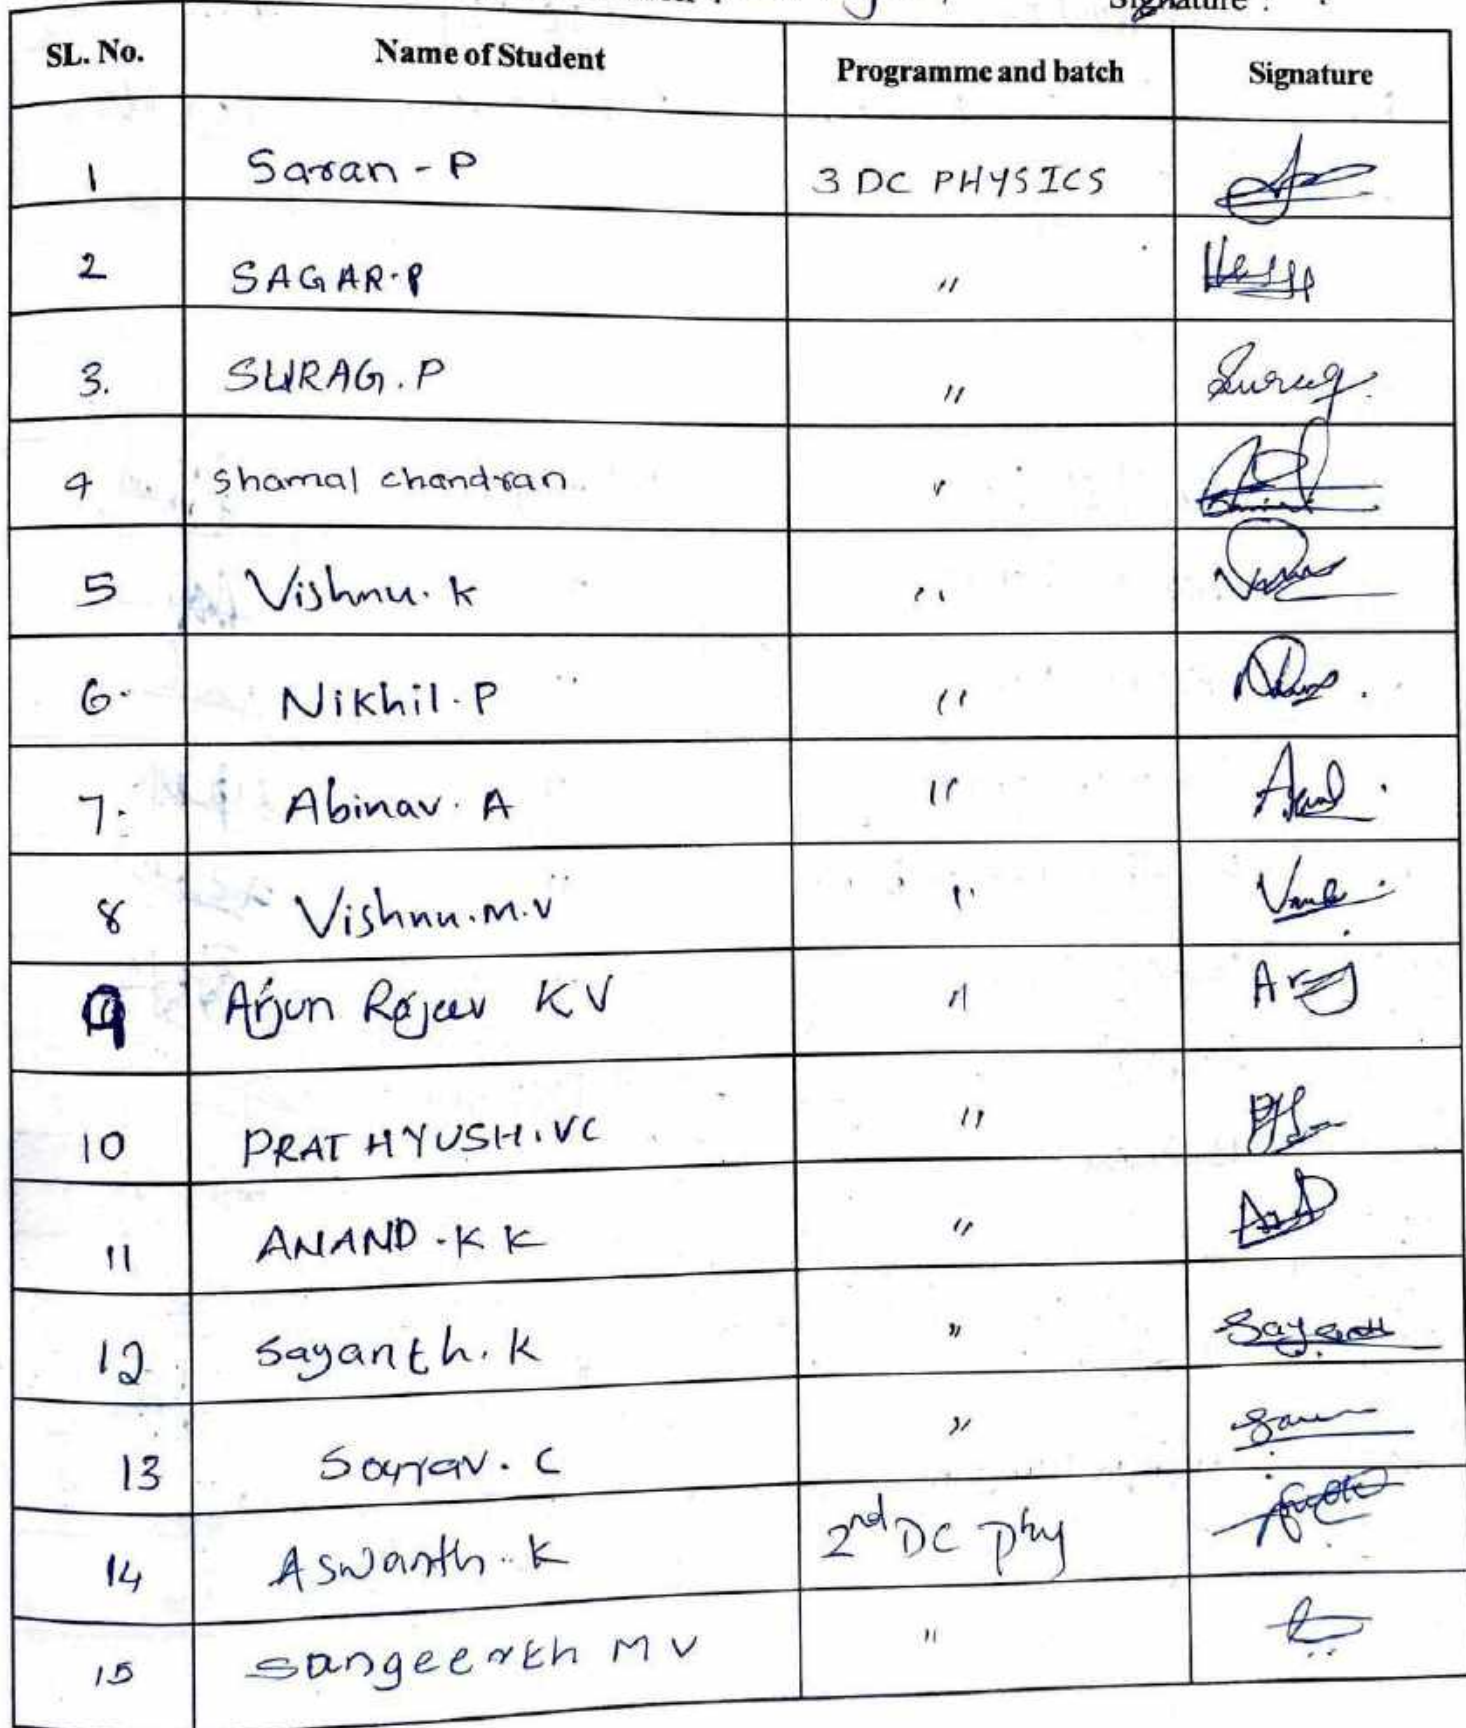 Signature :
SL. No. Name of Student Programme and batch Signature
1 Saran - P 3 DC PHYSICS
2 SAGAR.P "
3. SURAG.P " Surag.
4 Shamal chandran "
5 Vishnu. K "
6. Nikhil. P "
7. Abinav. A "
8 Vishnu.M.V "
9 Arjun Rajeev KV " Arj
10 PRATHYUSH.VC "
11 ANAND.K K "
12 Sayanth. K " Sayanth
13 Sourav. C "
14 Aswanth. K 2nd DC phy
15 Sangeerth M V "